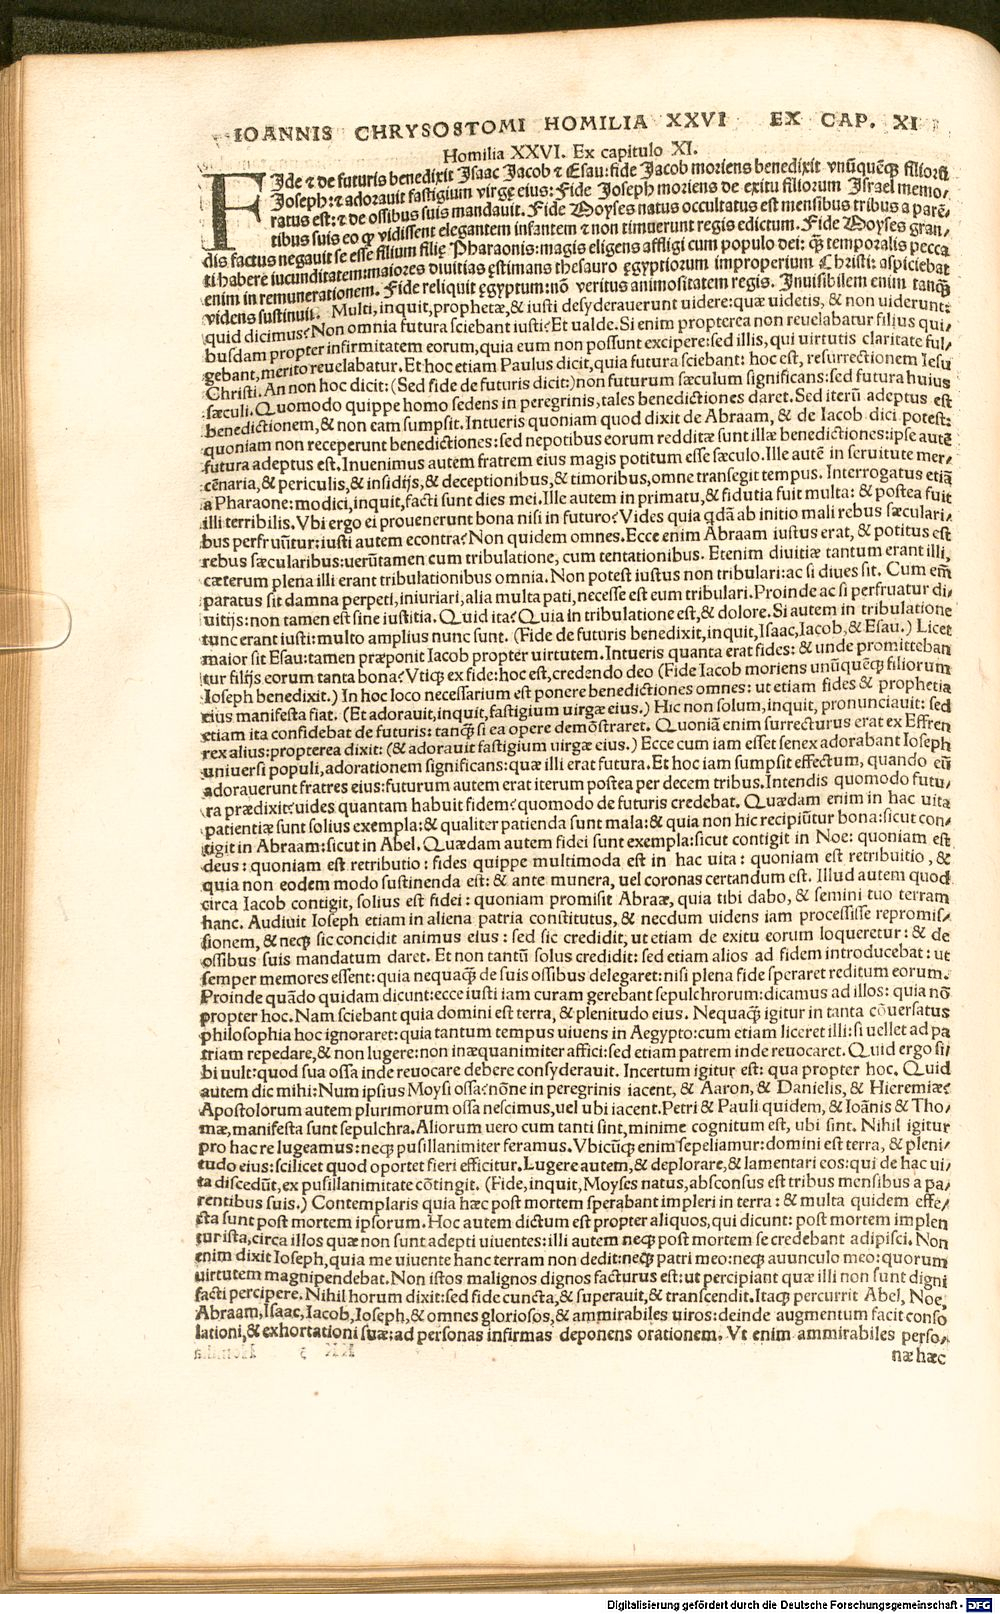 IOANNIS CHRYSOSTOMI HOMILIA XXVI EX CAP. XI
Homilia XXVI. Ex capitulo XI.
FIde ⁊ de futuris benedixit Isaac Jacob ⁊ Esau: fide Jacob moriens benedixit vnũquẽqꝫ filiorũ
Joseph: ⁊ adorauit fastigium virgę eius: Fide Joseph moriens de exitu filiorum Israel memo/
ratus est: ⁊ de ossibus suis mandauit. Fide Moyses natus occultatus est mensibus tribus a parẽ/
tibus suis eo ꝙ vidissent elegantem infantem ⁊ non timuerunt regis edictum. Fide Moyses gran/
dis factus negauit se esse filium filię Pharaonis: magis eligens affligi cum populo dei: ꝗ̃ temporalis pecca
ti habere iucunditatem: maiores diuitias ęstimans thesauro ęgyptiorum improperium Christi: aspiciebat
enim in remunerationem. Fide reliquit ęgyptum: nõ veritus animositatem regis. Inuisibilem enim tanqꝫ
videns sustinuit. Multi, inquit, prophetæ, & iusti desyderauerunt uidere: quæ uidetis, & non uiderunt:
quid dicimus? Non omnia futura sciebant iusti? Et ualde. Si enim propterea non reuelabatur filius qui/
busdam propter infirmitatem eorum, quia eum non possunt excipere: sed illis, qui uirtutis claritate ful/
gebant, merito reuelabatur. Et hoc etiam Paulus dicit, quia futura sciebant: hoc est, resurrectionem Iesu
Christi. An non hoc dicit: (Sed fide de futuris dicit:) non futurum sæculum significans: sed futura huius
sæculi. Quomodo quippe homo sedens in peregrinis, tales benedictiones daret. Sed iterũ adeptus est
benedictionem, & non eam sumpsit. Intueris quoniam quod dixit de Abraam, & de Iacob dici potest:
quoniam non receperunt benedictiones: sed nepotibus eorum redditæ sunt illæ benedictiones: ipse autẽ
futura adeptus est. Inuenimus autem fratrem eius magis potitum esse sæculo. Ille autẽ in seruitute mer/
cẽnaria, & periculis, & insidijs, & deceptionibus, & timoribus, omne transegit tempus. Interrogatus etiã
a Pharaone: modici, inquit, facti sunt dies mei. Ille autem in primatu, & fidutia fuit multa: & postea fuit
illi terribilis. Vbi ergo ei prouenerunt bona nisi in futuro? Vides quia qdã ab initio mali rebus sæculari/
bus perfruũtur: iusti autem econtra? Non quidem omnes. Ecce enim Abraam iustus erat, & potitus est
rebus sæcularibus: uerũtamen cum tribulatione, cum tentationibus. Etenim diuitiæ tantum erant illi,
cæterum plena illi erant tribulationibus omnia. Non potest iustus non tribulari: ac si diues sit. Cum em̃
paratus sit damna perpeti, iniuriari, alia multa pati, necesse est eum tribulari. Proinde ac si perfruatur di/
uitijs: non tamen est sine iustitia. Quid ita? Quia in tribulatione est, & dolore. Si autem in tribulatione
tunc erant iusti: multo amplius nunc sunt. (Fide de futuris benedixit, inquit, Isaac, Iacob, & Esau.) Licet
maior sit Esau: tamen præponit Iacob propter uirtutem. Intueris quanta erat fides: & unde promitteban
tur filijs eorum tanta bona? Vtiqꝫ ex fide: hoc est, credendo deo (Fide Iacob moriens unũquẽqꝫ filiorum
Ioseph benedixit.) In hoc loco necessarium est ponere benedictiones omnes: ut etiam fides & prophetia
eius manifesta fiat. (Et adorauit, inquit, fastigium uirgæ eius.) Hic non solum, inquit, pronunciauit: sed
etiam ita confidebat de futuris: tanqꝫ si ea opere demõstraret. Quoniã enim surrecturus erat ex Effren
rex alius: propterea dixit: (& adorauit fastigium uirgæ eius.) Ecce cum iam esset senex adorabant Ioseph
uniuersi populi, adorationem significans: quæ illi erat futura. Et hoc iam sumpsit effectum, quando eũ
adorauerunt fratres eius: futurum autem erat iterum postea per decem tribus. Intendis quomodo futu/
ra prædixit? uides quantam habuit fidem? quomodo de futuris credebat. Quædam enim in hac uita
patientiæ sunt solius exempla: & qualiter patienda sunt mala: & quia non hic recipiũtur bona: sicut con/
tigit in Abraam: sicut in Abel. Quædam autem fidei sunt exempla: sicut contigit in Noe: quoniam est
deus: quoniam est retributio: fides quippe multimoda est in hac uita: quoniam est retribuitio, &
quia non eodem modo sustinenda est: & ante munera, uel coronas certandum est. Illud autem quod
circa Iacob contigit, solius est fidei: quoniam promisit Abraæ, quia tibi dabo, & semini tuo terram
hanc. Audiuit Ioseph etiam in aliena patria constitutus, & necdum uidens iam processisse repromis/
sionem, & neqꝫ sic concidit animus eius: sed sic credidit, ut etiam de exitu eorum loqueretur: & de
ossibus suis mandatum daret. Et non tantũ solus credidit: sed etiam alios ad fidem introducebat: ut
semper memores essent: quia nequaqꝫ̃ de suis ossibus delegaret: nisi plena fide speraret reditum eorum.
Proinde quãdo quidam dicunt: ecce iusti iam curam gerebant sepulchrorum: dicamus ad illos: quia nõ
propter hoc. Nam sciebant quia domini est terra, & plenitudo eius. Nequaqꝫ̃ igitur in tanta cõuersatus
philosophia hoc ignoraret: quia tantum tempus uiuens in Aegypto: cum etiam liceret illi: si uellet ad pa
triam repedare, & non lugere: non inæquanimiter affici: sed etiam patrem inde reuocaret. Quid ergo si/
bi uult: quod sua ossa inde reuocare debere consyderauit. Incertum igitur est: qua propter hoc. Quid
autem dic mihi: Num ipsius Moysi ossa? nõne in peregrinis iacent, & Aaron, & Danielis, & Hieremiæ?
Apostolorum autem plurimorum ossa nescimus, uel ubi iacent. Petri & Pauli quidem, & Ioãnis & Tho/
mæ, manifesta sunt sepulchra. Aliorum uero cum tanti sint, minime cognitum est, ubi sint. Nihil igitur
pro hac re lugeamus: neqꝫ pusillanimiter feramus. Vbicũqꝫ enim sepeliamur: domini est terra, & pleni/
tudo eius: scilicet quod oportet fieri efficitur. Lugere autem, & deplorare, & lamentari eos: qui de hac ui/
ta discedũt, ex pusillanimitate cõtingit. (Fide, inquit, Moyses natus, absconsus est tribus mensibus a pa/
rentibus suis.) Contemplaris quia hæc post mortem sperabant impleri in terra: & multa quidem effe/
cta sunt post mortem ipsorum. Hoc autem dictum est propter aliquos, qui dicunt: post mortem implen
tur ista, circa illos quæ non sunt adepti uiuentes: illi autem neqꝫ post mortem se credebant adipisci. Non
enim dixit Ioseph, quia me uiuente hanc terram non dedit: neqꝫ patri meo: neqꝫ auunculo meo: quorum
uirtutem magnipendebat. Non istos malignos dignos facturus est: ut percipiant quæ illi non sunt digni
facti percipere. Nihil horum dixit: sed fide cuncta, & superauit, & transcendit. Itaqꝫ percurrit Abel, Noe,
Abraam, Isaac, Iacob, Ioseph, & omnes gloriosos, & ammirabiles uiros: deinde augmentum facit conso
lationi, & exhortationi suæ: ad personas infirmas deponens orationem. Vt enim ammirabiles perso/
næ hæc
Digitalisierung gefördert durch die Deutsche Forschungsgemeinschaft - DFG